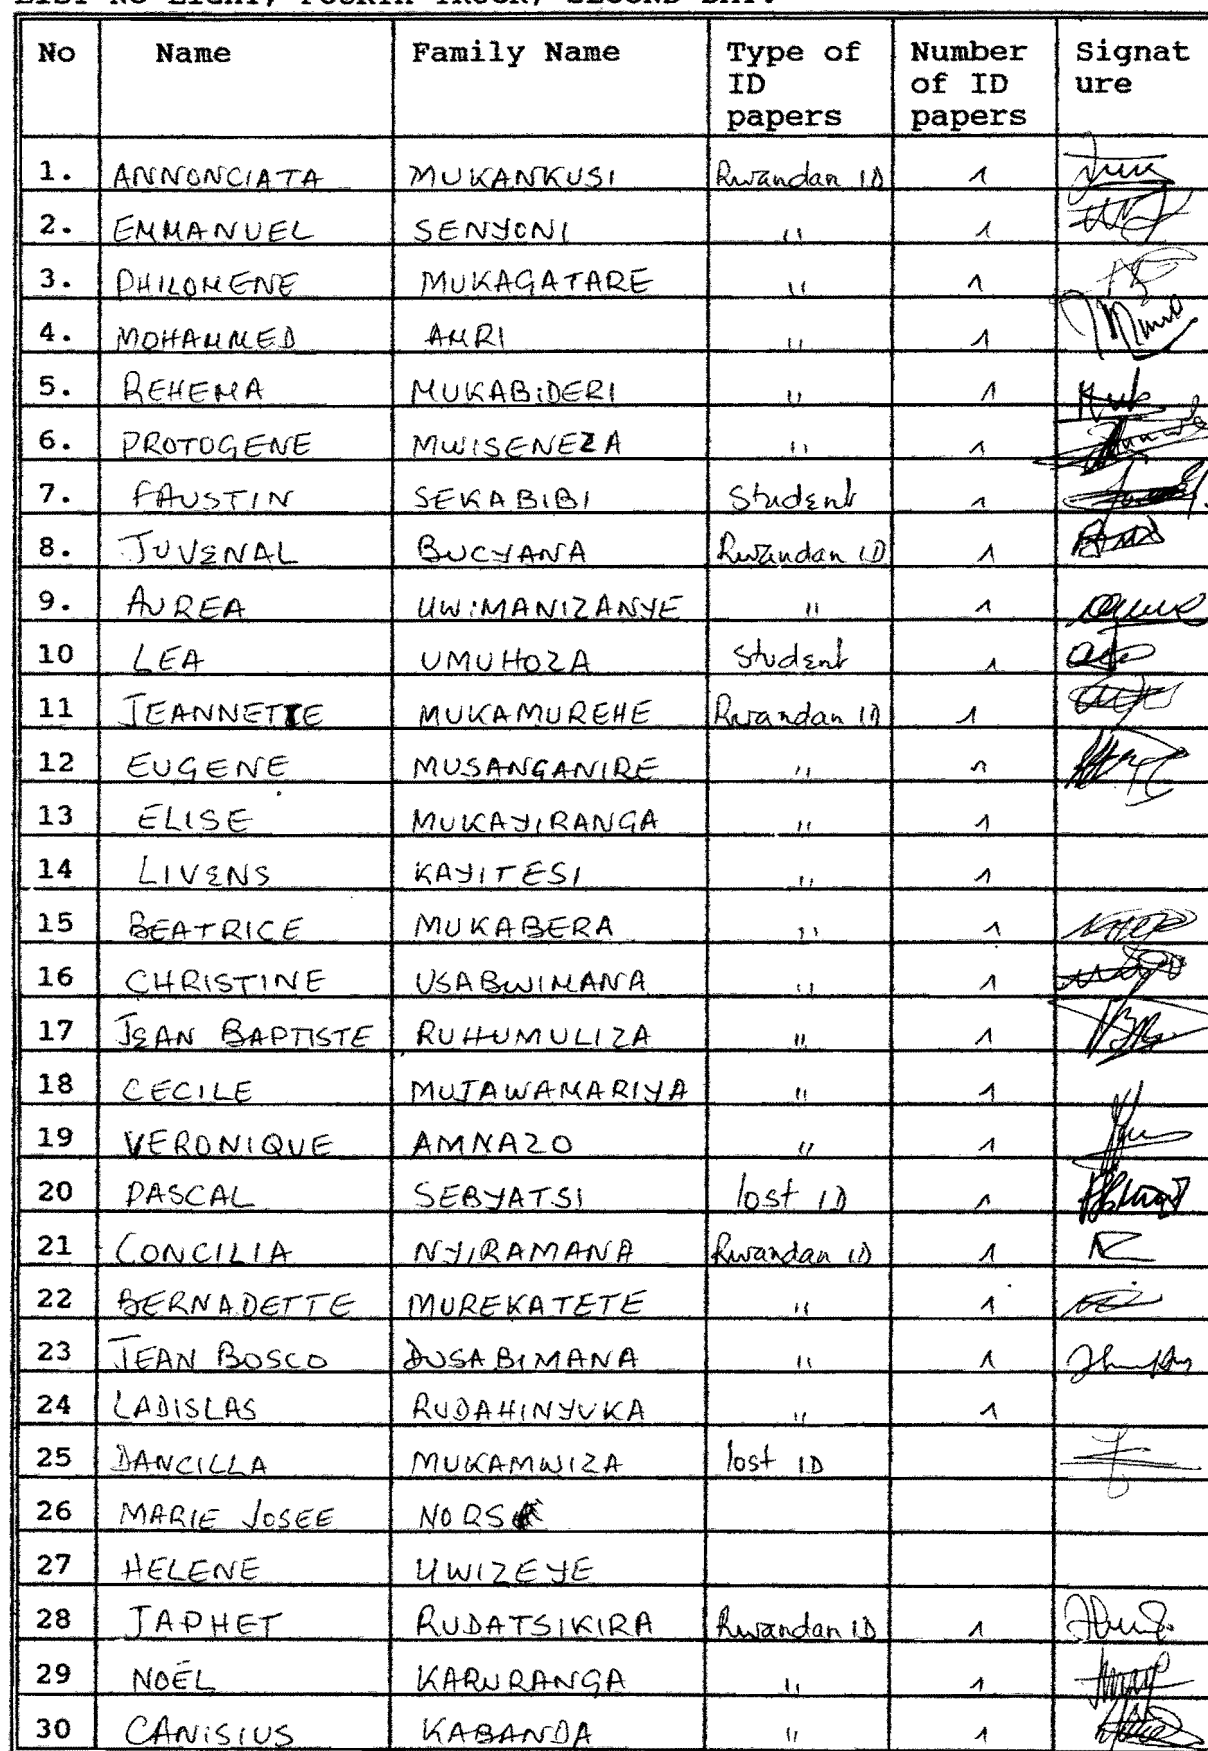 LIST NO EIGHT, FOURTH TRUCK, SECOND DAY.
No Name Family Name Type of ID papers Number of ID papers Signature
1. ANNONCIATA MUKANKUSI Rwandan ID 1
2. EMMANUEL SENYONI " 1
3. PHILOMENE MUKAGATARE " 1
4. MOHAMMED AMRI " 1
5. REHEMA MUKABIDERI " 1
6. PROTOGENE MWISENEZA " 1
7. FAUSTIN SEKABIBI Student 1
8. JUVENAL BUCYANA Rwandan ID 1
9. AUREA UWIMANIZANYE " 1
10 LEA UMUHOZA Student 1
11 JEANNETTE MUKAMUREHE Rwandan ID 1
12 EUGENE MUSANGANIRE " 1
13 ELISE MUKAYIRANGA " 1
14 LIVENS KAYITESI " 1
15 BEATRICE MUKABERA " 1
16 CHRISTINE USABWIMANA " 1
17 JEAN BAPTISTE RUHUMULIZA " 1
18 CECILE MUJAWAMARIYA " 1
19 VERONIQUE AMNAZO " 1
20 PASCAL SEBYATSI lost ID 1
21 CONCILIA NYIRAMANA Rwandan ID 1
22 BERNADETTE MUREKATETE " 1
23 JEAN BOSCO DUSABIMANA " 1
24 LADISLAS RUDAHINYUKA " 1
25 DANCILLA MUKAMWIZA lost ID
26 MARIE JOSEE
27 HELENE UWIZEYE
28 JAPHET RUDATSIKIRA Rwandan ID 1
29 NOËL KARURANGA " 1
30 CANISIUS KABANDA " 1